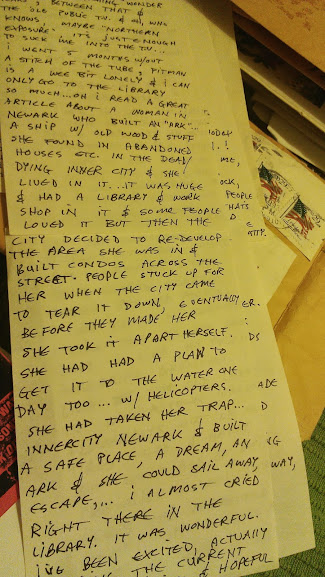 WONDER
, BETWEEN THAT &
THE OLD PUBLIC T.V. & OH, WHO
KNOWS, MAYBE "NORTHERN
EXPOSURE" IT'S JUST ENOUGH
TO SUCK ME INTO THE T.V...
I WENT 7 MONTHS W/OUT
A STITCH OF THE TUBE, PITMAN
IS A WEE BIT LONELY & I CAN
ONLY GO TO THE LIBRARY
SO MUCH...OH I READ A GREAT
ARTICLE ABOUT A WOMAN IN
NEWARK WHO BUILT AN "ARK"...
A SHIP W/ OLD WOOD & STUFF
SHE FOUND IN ABANDONED
HOUSES ETC. IN THE DEAD/
DYING INNER CITY & SHE
LIVED IN IT...IT WAS HUGE
& HAD A LIBRARY & WORK
SHOP IN IT & SOME PEOPLE
LOVED IT BUT THEN THE
CITY DECIDED TO RE-DEVELOP
THE AREA SHE WAS IN &
BUILT CONDOS ACROSS THE
STREET. PEOPLE STUCK UP FOR
HER WHEN THE CITY CAME
TO TEAR IT DOWN, EVENTUALLY
BEFORE THEY MADE HER
SHE TOOK IT APART HERSELF.
SHE HAD HAD A PLAN TO
GET IT TO THE WATER ONE
DAY TOO... W/ HELICOPTERS.
SHE HAD TAKEN HER TRAP...
INNERCITY NEWARK & BUILT
A SAFE PLACE, A DREAM, AN
ARK & SHE COULD SAIL AWAY,
ESCAPE,... I ALMOST CRIED
RIGHT THERE IN THE
LIBRARY. IT WAS WONDERFUL.
I'VE BEEN EXCITED, ACTUALLY
THE CURRENT
& HOPEFUL